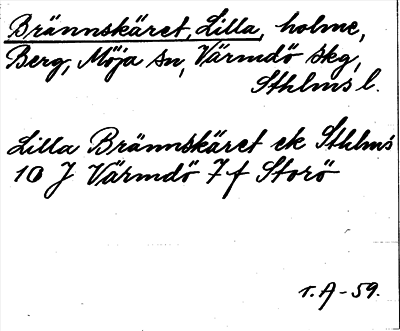 Brännskäret, Lilla, holme,
Berg, Möja sn, Värmdö skg,
Sthlms l.
Lilla Brännskäret ek Sthlms
10 J Värmdö 7f Storö
T.A-59.